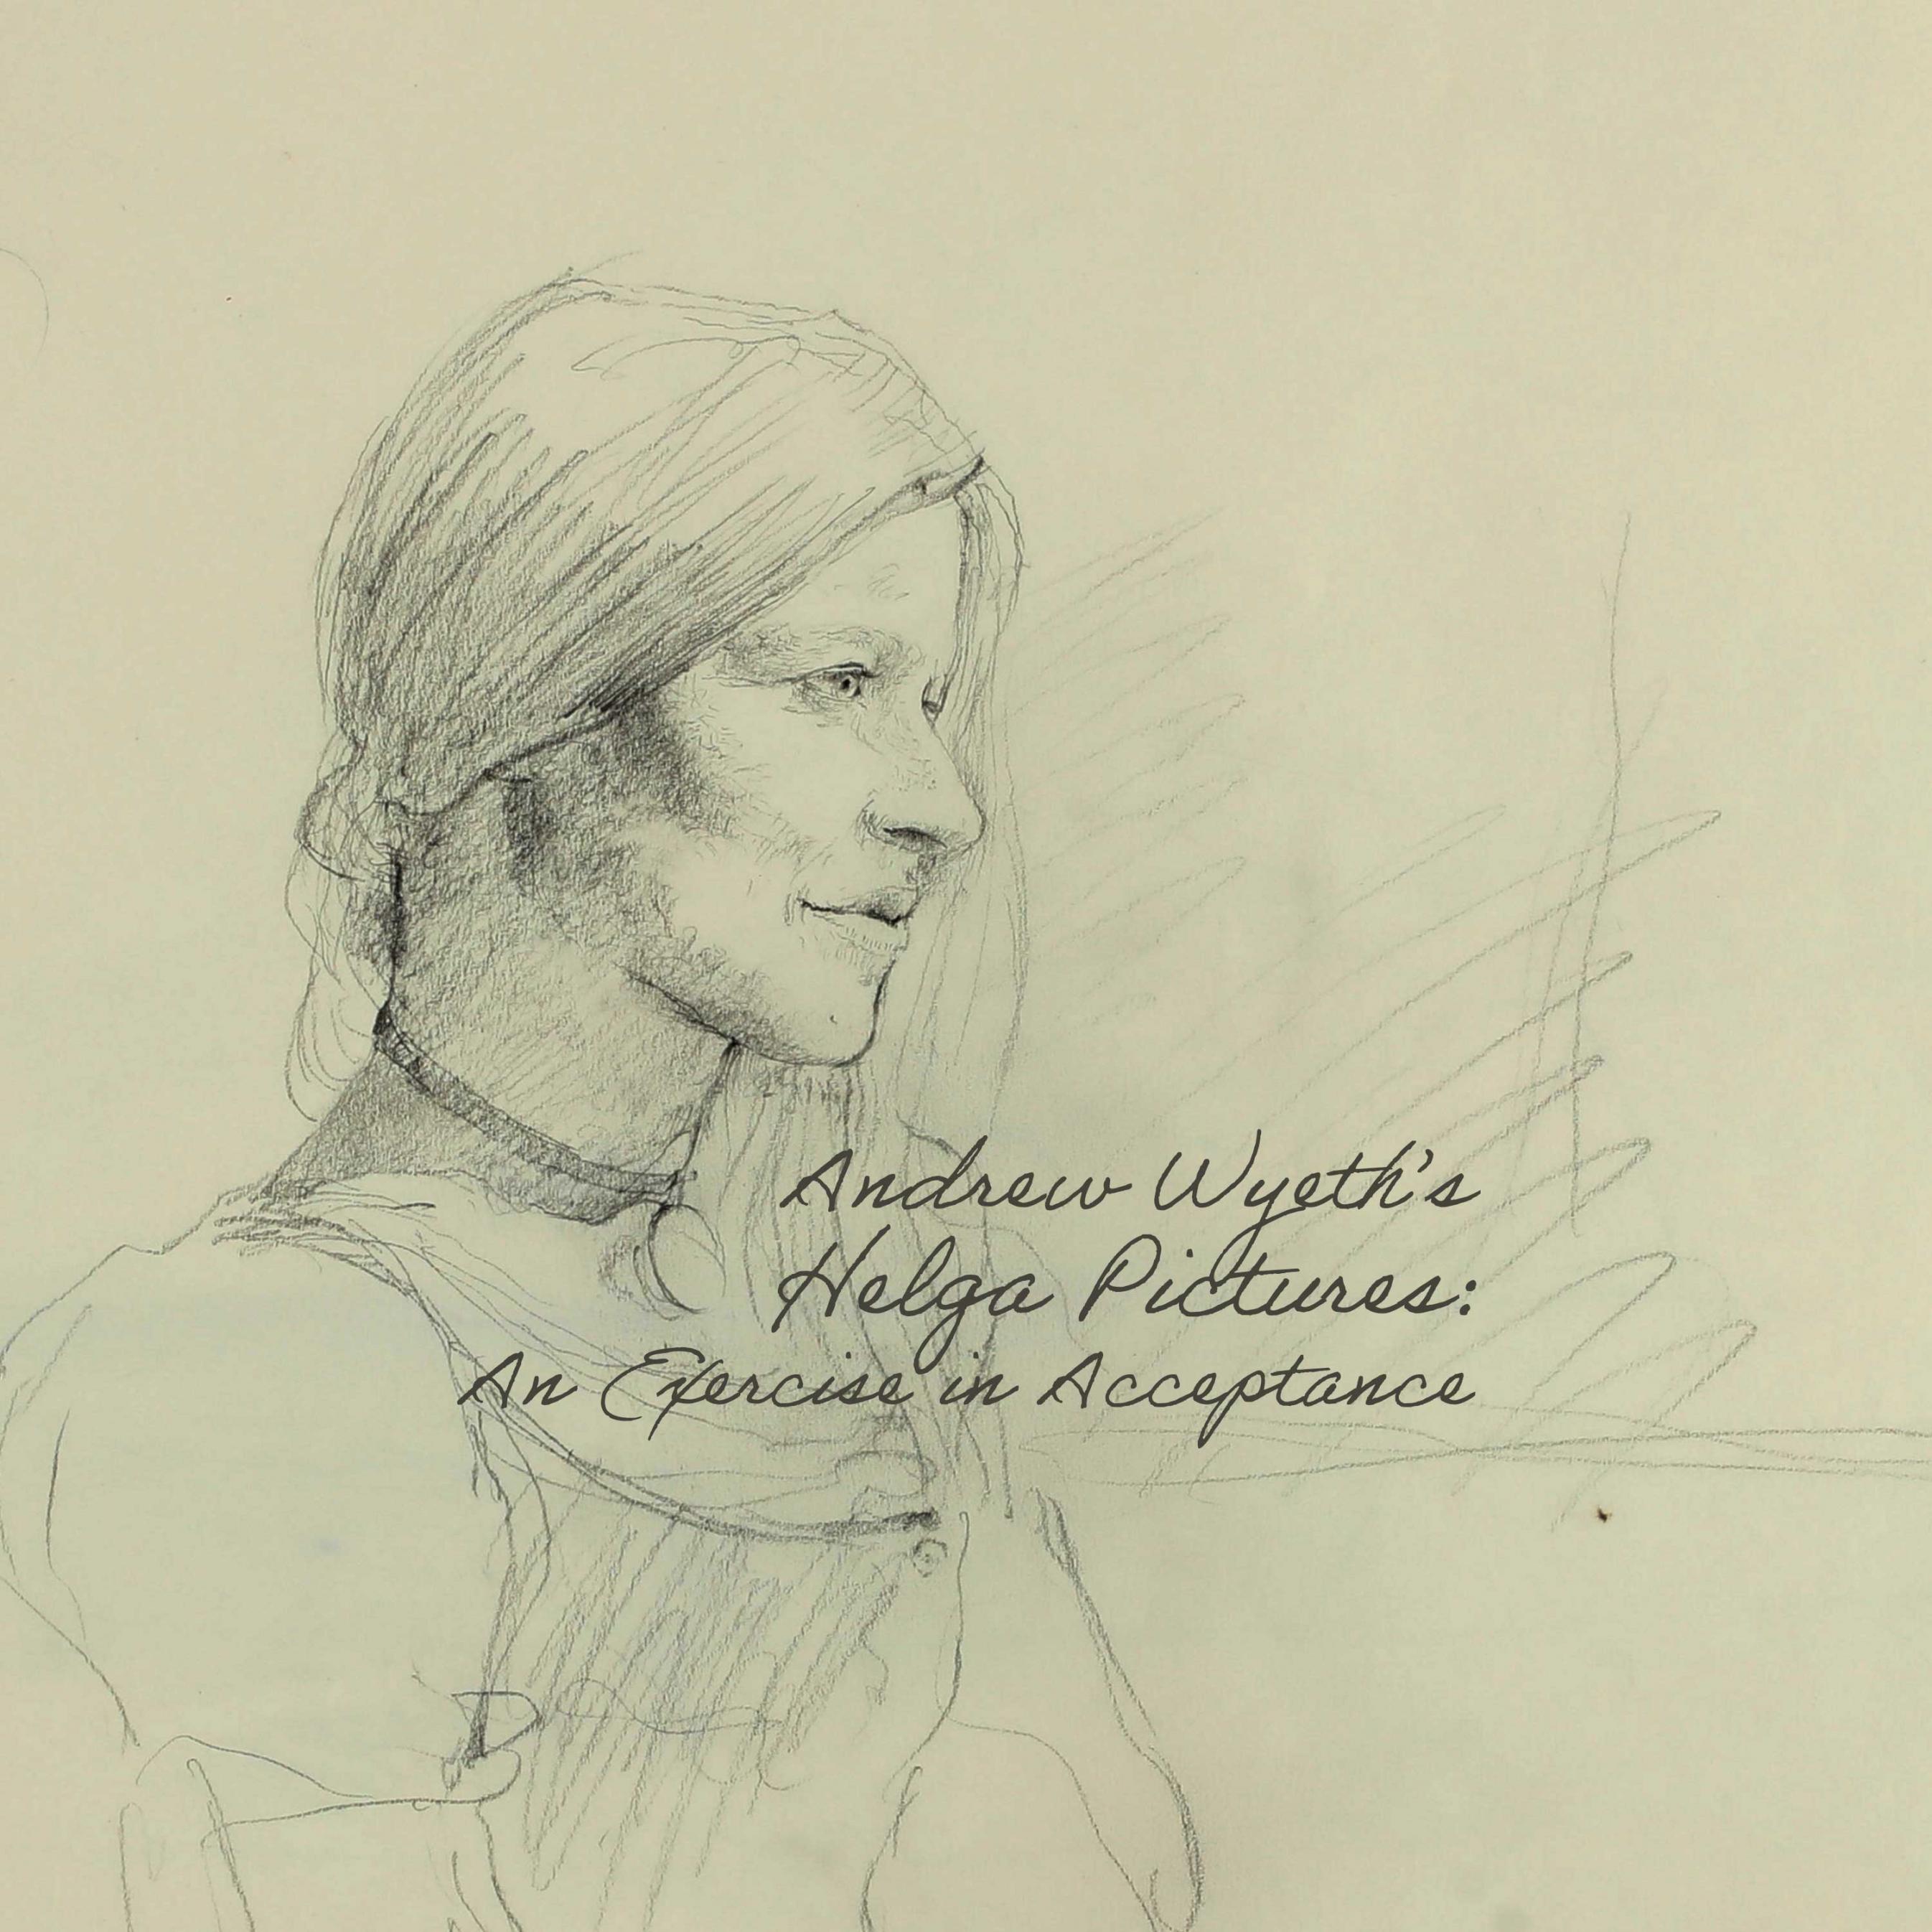 Andrew Wyeth's
Helga Pictures:
An Exercise in Acceptance